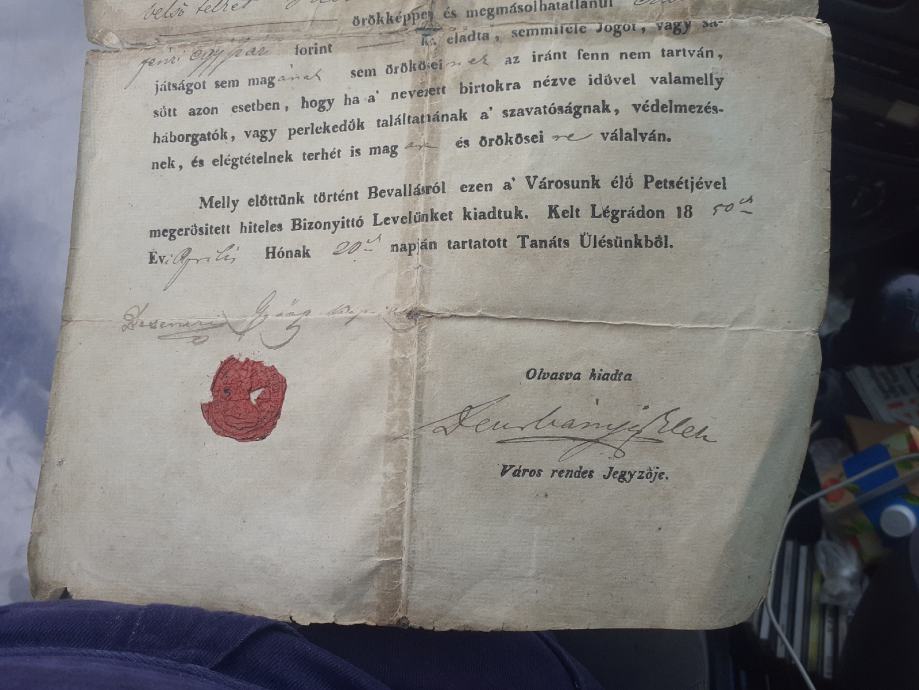 belső telket
örökképpen és megmásolhatatlanúl
forint eladta, semmiféle Jogot, vagy sa-
játságot sem magának sem örökőseinek az iránt fenn nem tartván,
sőtt azon esetben, hogy ha a' nevezett birtokra nézve idővel valamelly
háborgatók, vagy perlekedők találtatnának a' szavatóságnak, védelmezés-
nek, és elégtételnek terhét is magára és örökősei re válalván.
Melly előttünk történt Bevallásról ezen a' Városunk élő Petsétjével
megerősitett hiteles Bizonyittó Levelünket kiadtuk. Kelt Légrádon 18 50ik
Év: Április Hónak 20ik napján tartatott Tanáts Ülésünkből.
Olvasva kiadta
Elek
Város rendes Jegyzője.